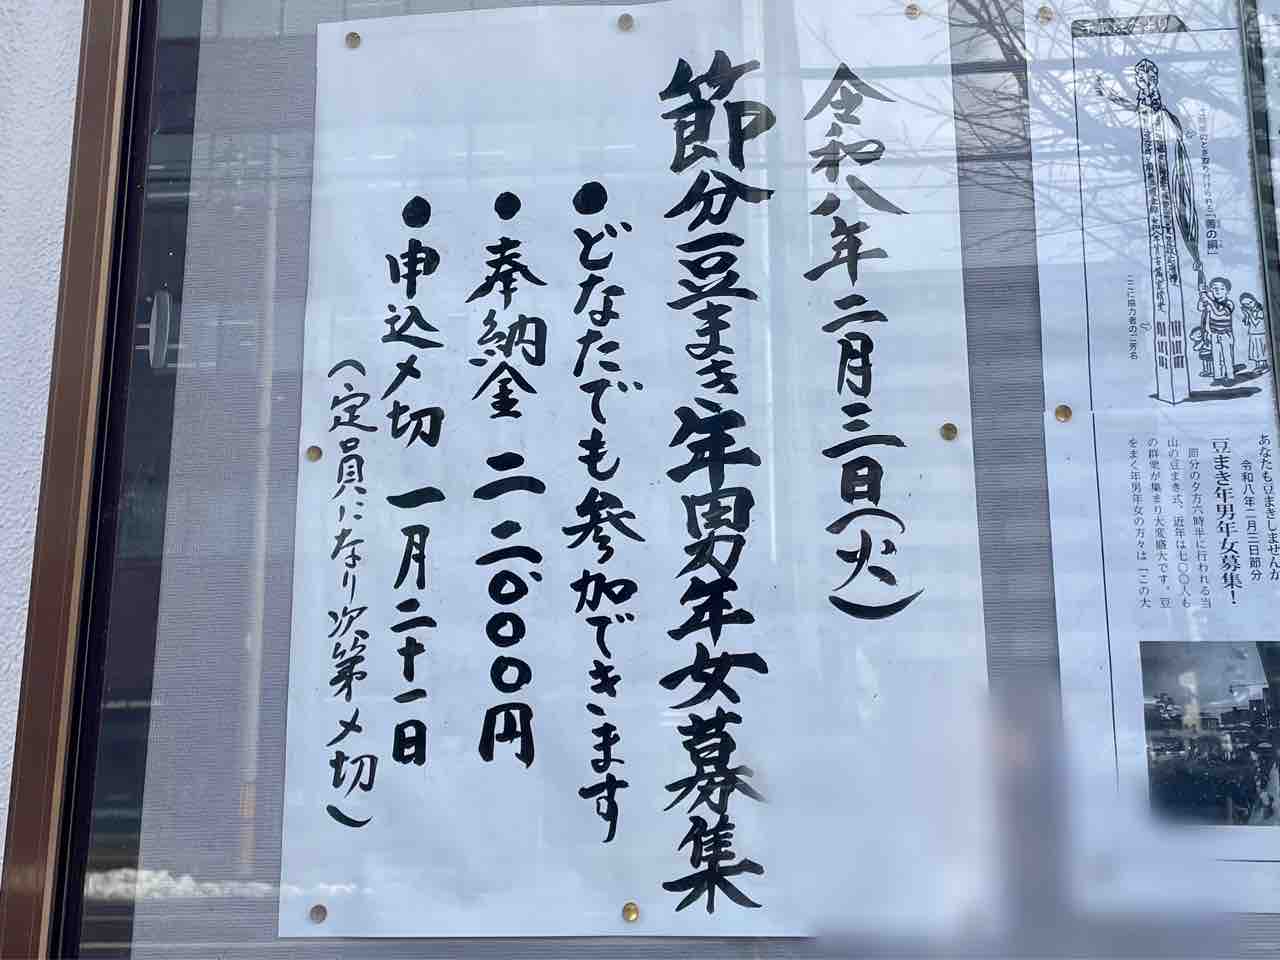 令和八年二月三日(火)
節分豆まき年男年女募集
●どなたでも参加できます
●奉納金 二二、〇〇〇円
●申込〆切 一月二十一日
(定員になり次第〆切)
「善の綱」
ここに協力者のご芳名
あなたも豆まきしませんか
令和八年二月三日節分
豆まき年男年女募集!
節分の夕方六時半に行われる当
山の豆まき式、近年は七〇〇人も
の群衆が集まり大変盛大です。豆
をまく年男年女の方々は「この大